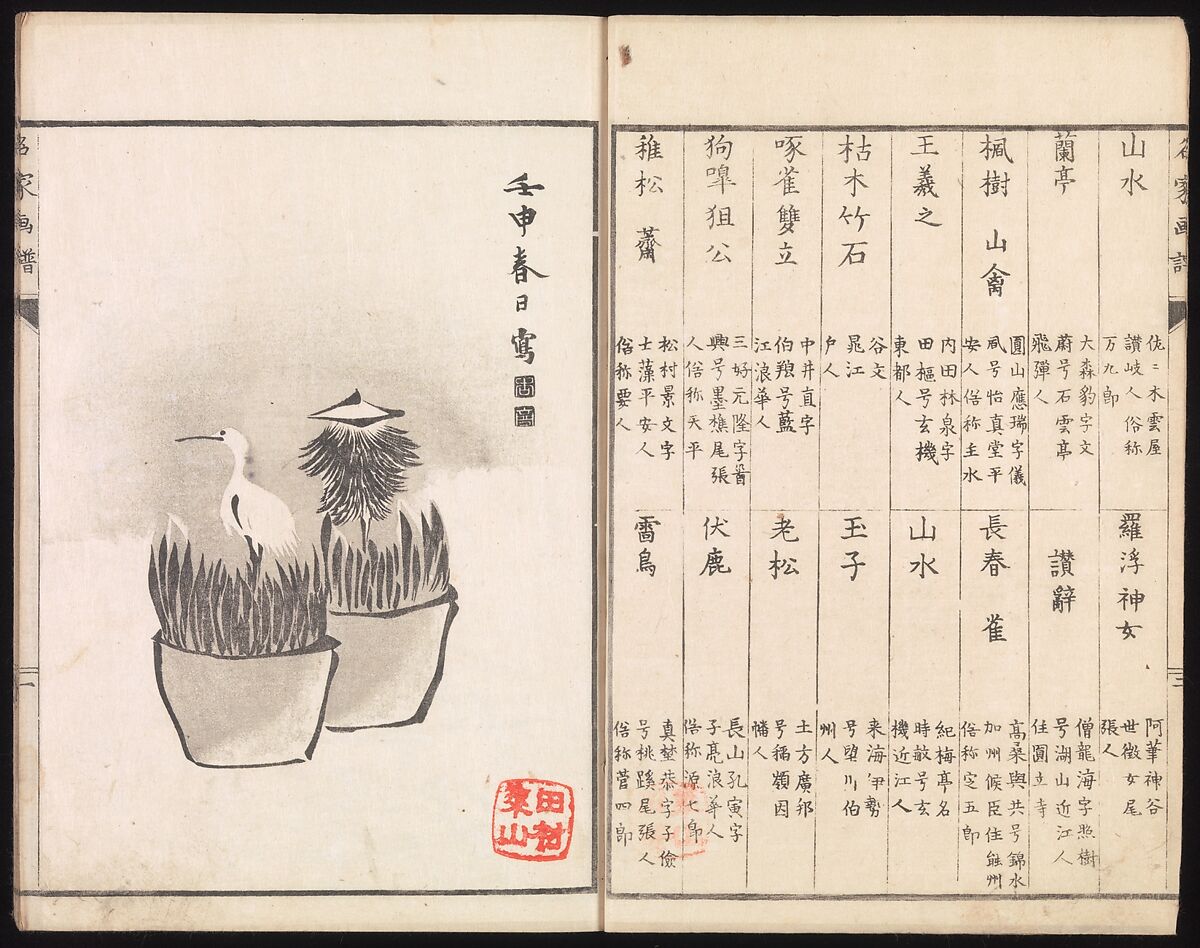 名家画譜
三
山水
佐〻木雲屋
讃岐人俗称
万九郎
蘭亭
大森豹字文
蔚号石雲亭
飛彈人
楓樹 山禽
圓山應瑞字儀
鳳号怡真堂平
安人俗称主水
王羲之
内田林泉字
田樞号玄機
東都人
枯木竹石
谷文
晁江
戸人
啄雀雙立
中井直字
伯翔号藍
江浪華人
狗嘷狙公
三好元隆字
興号墨樵尾張
人俗称天平
稚松 薺
松村景文字
士藻平安人
俗称要人
羅浮神女
阿華神谷
世徴女尾
張人
讃辭
僧龍海字照樹
号湖山近江人
住圓立寺
長春 雀
高桑與共号錦水
加州候臣住能州
俗称定五郎
山水
紀梅亭名
時敏号玄
機近江人
玉子
来海伊勢
号堕川伯
州人
老松
土方廣邦
号稲嶺因
幡人
伏鹿
長山孔寅字
子亮浪華人
俗称源七郎
雷鳥
真埜恭字子儉
号桃蹊尾張人
俗称菅四郎
壬申春日寫
田村
東山
名家画譜
一